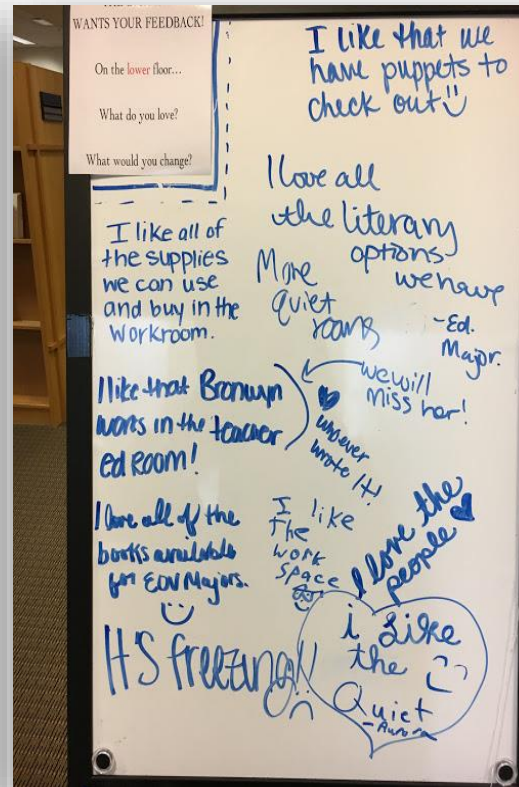 WANTS YOUR FEEDBACK!
On the lower floor...
What do you love?
What would you change?
I like that we
have puppets to
check out
I love all
the literary
options
we have
-Ed.
Major.
I like all of
the supplies
we can use
and buy in the
workroom.
More
quiet
rooms
I like that Bronwyn
works in the teacher
ed Room!
we will
miss her!
whoever
wrote it!
I love all of the
books available
for EDU Majors.
I like
the
work
space
I love the
people
It's freezing!!
i Like
the
Quiet
-Aurora